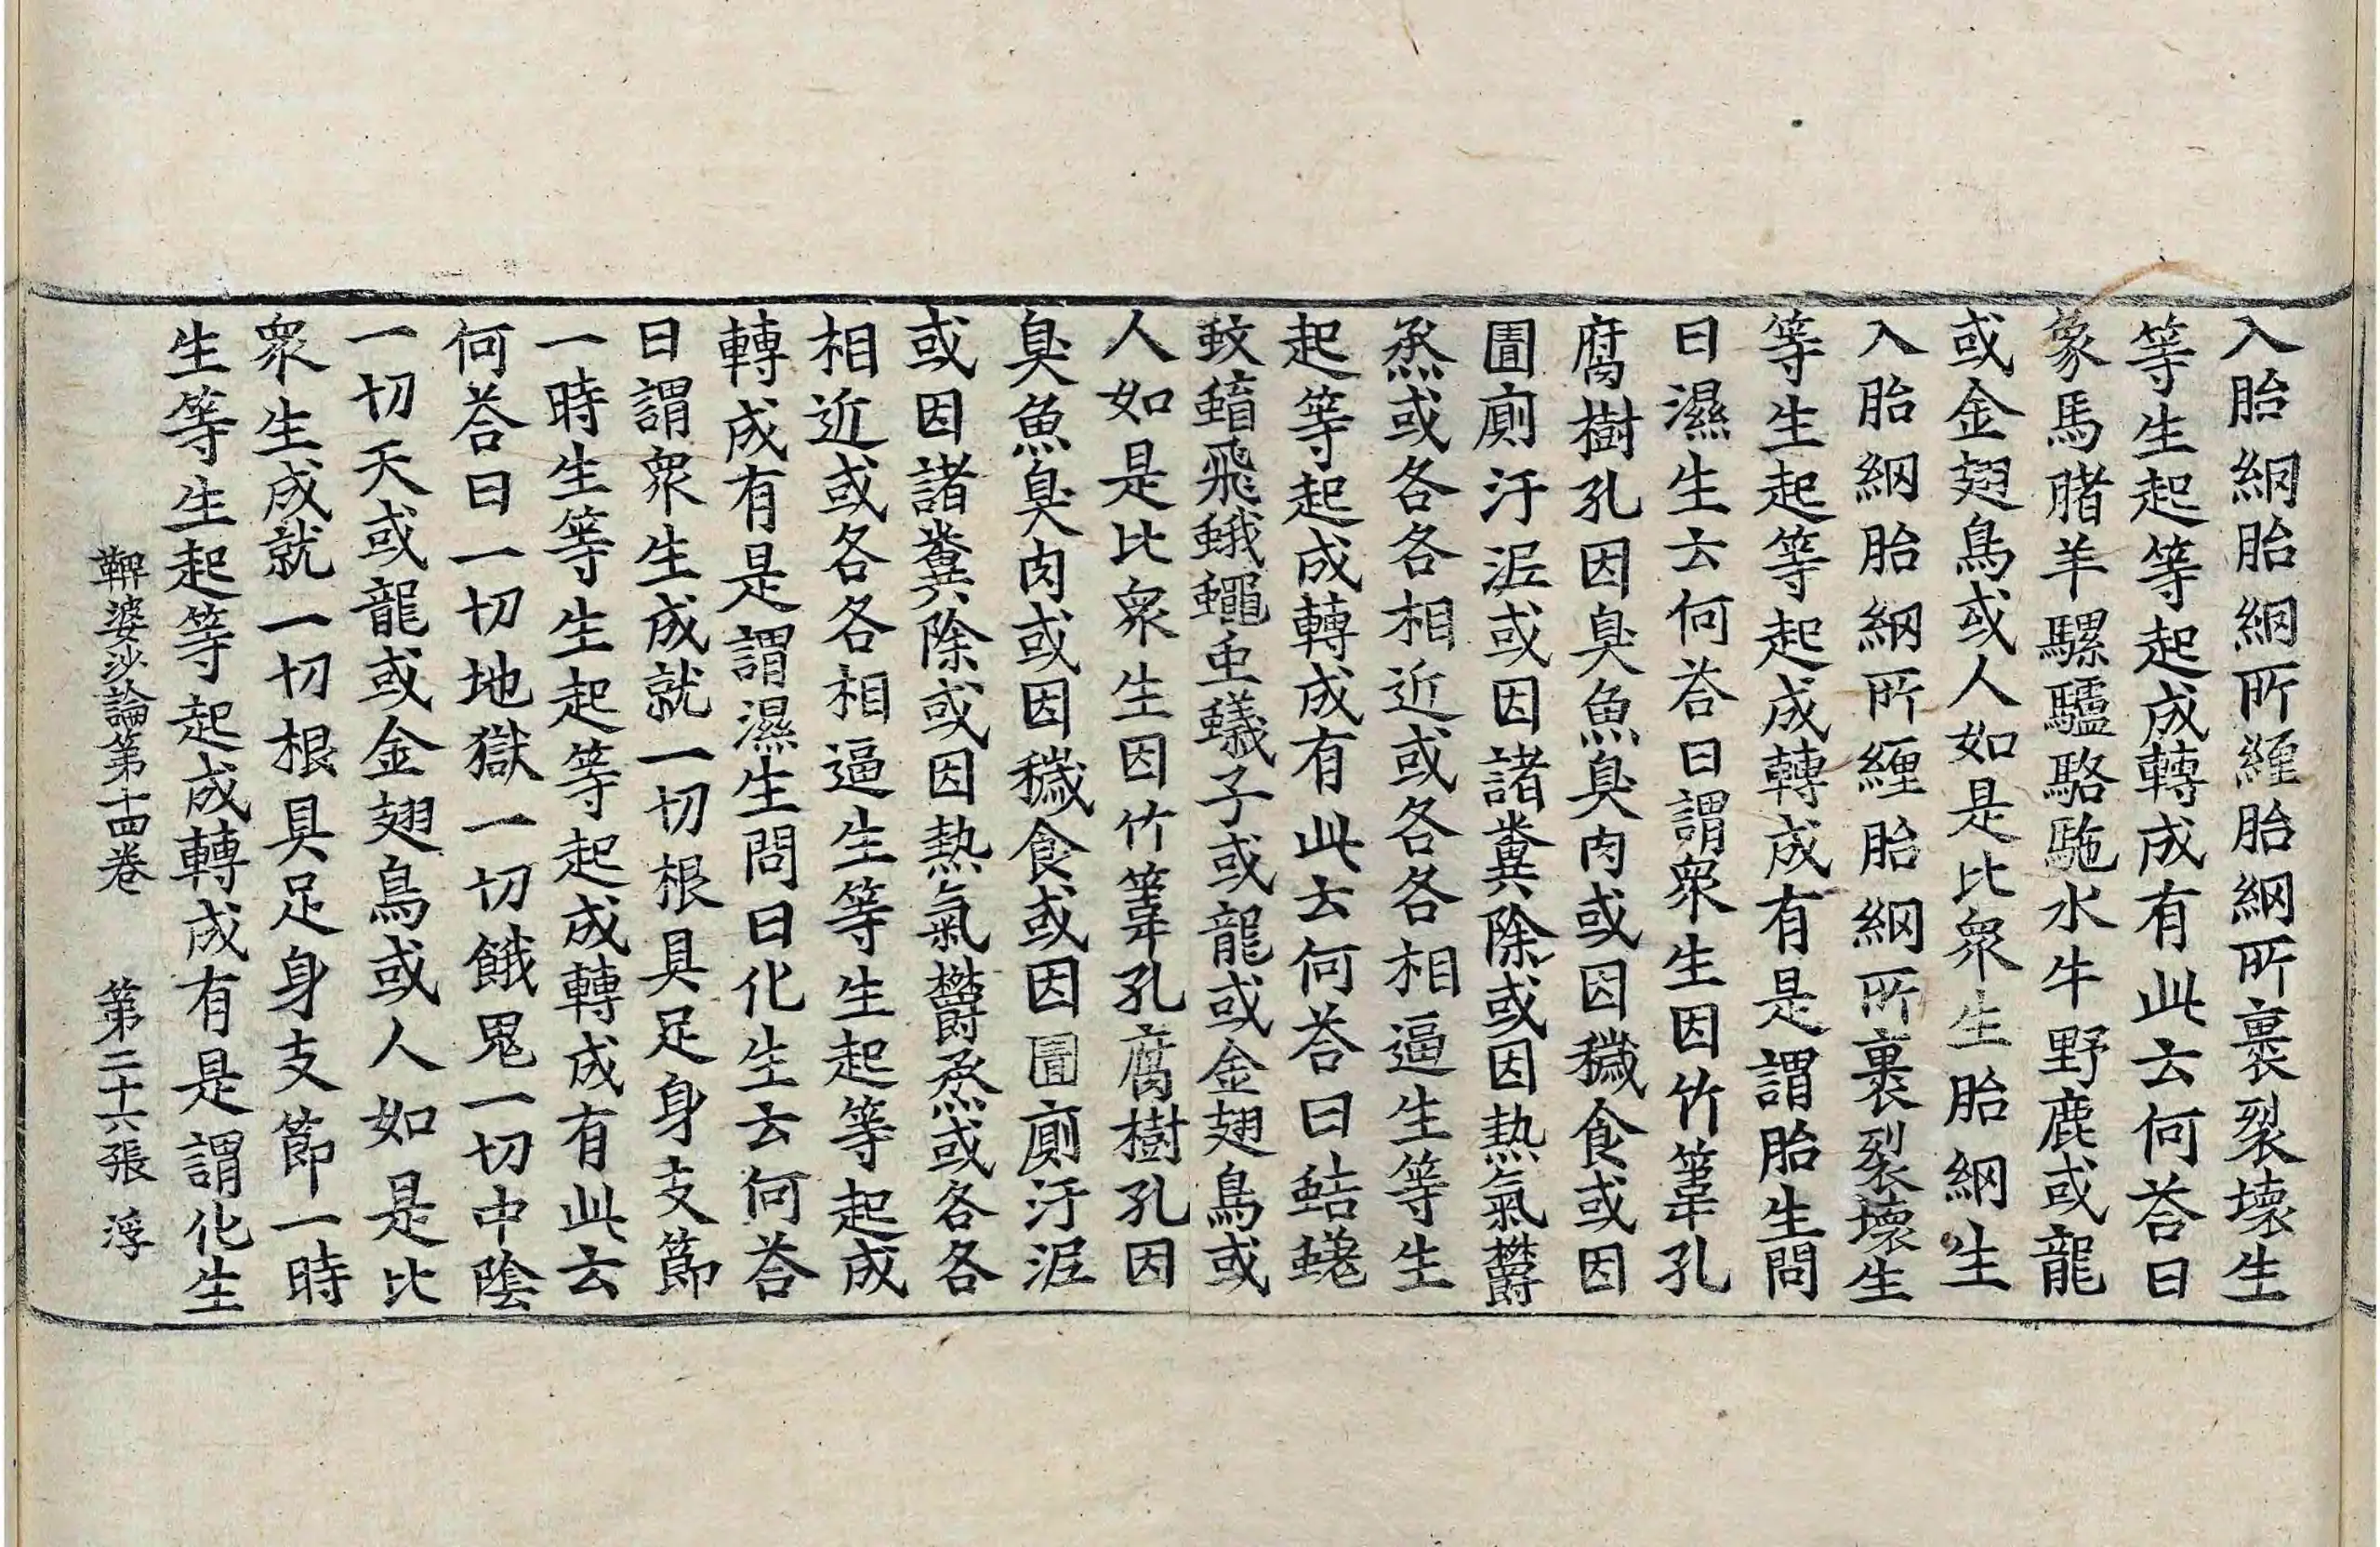 入胎網胎網所纏胎網所裹裂壞生
等生起等起成轉成有此云何荅曰
象馬腤羊騾驢駱駞水牛野鹿或龍
或金翅鳥或人如是比衆生胎網生
入胎網胎網所纏胎網所裹裂壞生
等生起等起成轉成有是謂胎生問
曰濕生云何荅曰謂衆生因竹葦孔
腐樹孔因臭魚臭肉或因穢食或因
圊廁汙泥或因諸糞除或因熱氣欝
烝或各各相近或各各相逼生等生
起等起成轉成有此云何荅曰蛣蜣
蚊蝔飛蛾蠅虫蟻子或龍或金翅鳥或
人如是比衆生因竹葦孔腐樹孔因
臭魚臭肉或因穢食或因圊廁汙泥
或因諸糞除或因熱氣欝烝或各各
相近或各各相逼生等生起等起成
轉成有是謂濕生問曰化生云何荅
曰謂衆生成就一切根具足身支節
一時生等生起等起成轉成有此云
何荅曰一切地獄一切餓鬼一切中陰
一切天或龍或金翅鳥或人如是比
衆生成就一切根具足身支節一時
生等生起等起成轉成有是謂化生
鞞婆沙論第十四卷 第二十六張 浮